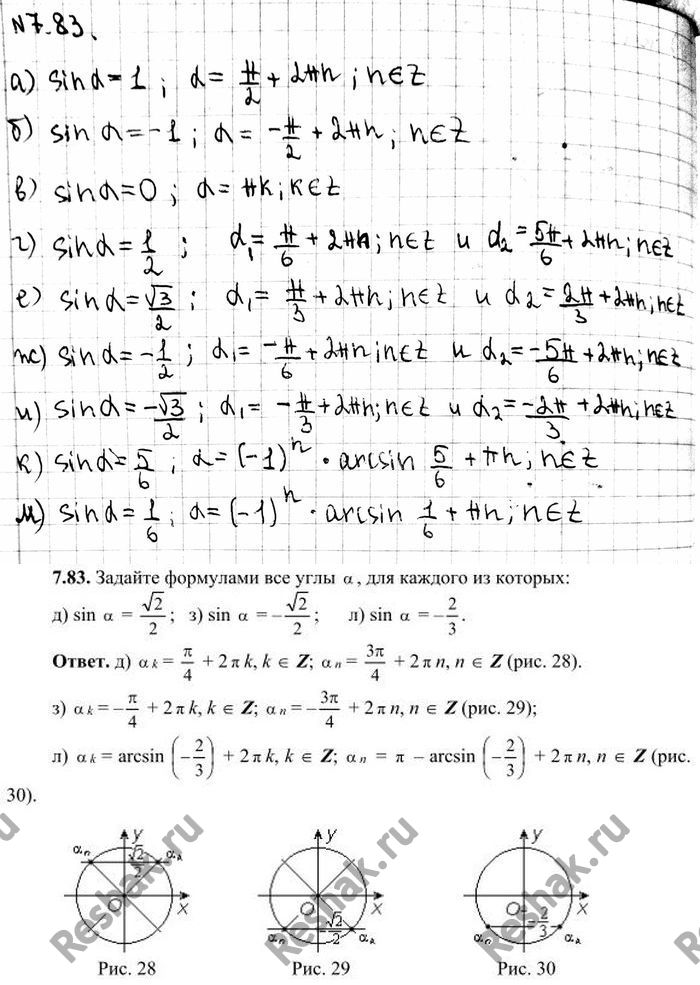 N7.83.
а) sin α = 1 ; α = π/2 + 2πn ; n ∈ Z
б) sin α = -1 ; α = -π/2 + 2πn ; n ∈ Z
в) sin α = 0 ; α = πk ; k ∈ Z
г) sin α = 1/2 ; α₁ = π/6 + 2πn ; n ∈ Z и α₂ = 5π/6 + 2πn ; n ∈ Z
е) sin α = √3/2 ; α₁ = π/3 + 2πn ; n ∈ Z и α₂ = 2π/3 + 2πn ; n ∈ Z
ж) sin α = -1/2 ; α₁ = -π/6 + 2πn ; n ∈ Z и α₂ = -5π/6 + 2πn ; n ∈ Z
и) sin α = -√3/2 ; α₁ = -π/3 + 2πn ; n ∈ Z и α₂ = -2π/3 + 2πn ; n ∈ Z
к) sin α = 5/6 ; α = (-1)ⁿ · arcsin 5/6 + πn ; n ∈ Z
м) sin α = 1/6 ; α = (-1)ⁿ · arcsin 1/6 + πn ; n ∈ Z
7.83. Задайте формулами все углы α, для каждого из которых:
д) sin α = √2/2 ; з) sin α = -√2/2 ; л) sin α = -2/3.
Ответ. д) αk = π/4 + 2πk, k ∈ Z; αn = 3π/4 + 2πn, n ∈ Z (рис. 28).
з) αk = -π/4 + 2πk, k ∈ Z; αn = -3π/4 + 2πn, n ∈ Z (рис. 29);
л) αk = arcsin (-2/3) + 2πk, k ∈ Z; αn = π - arcsin (-2/3) + 2πn, n ∈ Z (рис.
30).
αn √2/2 αk y O x
y O x αn -√2/2 αk
y O x αn -2/3 αk
Рис. 28 Рис. 29 Рис. 30
Reshak.ru Reshak.ru Reshak.ru